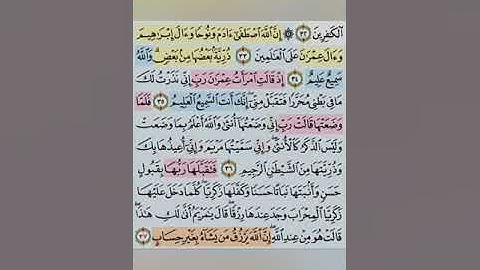 ٱلْكَٰفِرِينَ ٣٢ ۞ إِنَّ ٱللَّهَ ٱصْطَفَىٰٓ ءَادَمَ وَنُوحًا وَءَالَ إِبْرَٰهِيمَ
وَءَالَ عِمْرَٰنَ عَلَى ٱلْعَٰلَمِينَ ٣٣ ذُرِّيَّةًۢ بَعْضُهَا مِنۢ بَعْضٍ ۗ وَٱللَّهُ
سَمِيعٌ عَلِيمٌ ٣٤ إِذْ قَالَتِ ٱمْرَأَتُ عِمْرَٰنَ رَبِّ إِنِّى نَذَرْتُ لَكَ
مَا فِى بَطْنِى مُحَرَّرًا فَتَقَبَّلْ مِنِّىٓ ۖ إِنَّكَ أَنتَ ٱلسَّمِيعُ ٱلْعَلِيمُ ٣٥ فَلَمَّا
وَضَعَتْهَا قَالَتْ رَبِّ إِنِّى وَضَعْتُهَآ أُنثَىٰ وَٱللَّهُ أَعْلَمُ بِمَا وَضَعَتْ
وَلَيْسَ ٱلذَّكَرُ كَٱلْأُنثَىٰ ۖ وَإِنِّى سَمَّيْتُهَا مَرْيَمَ وَإِنِّىٓ أُعِيذُهَا بِكَ
وَذُرِّيَّتَهَا مِنَ ٱلشَّيْطَٰنِ ٱلرَّجِيمِ ٣٦ فَتَقَبَّلَهَا رَبُّهَا بِقَبُولٍ
حَسَنٍ وَأَنۢبَتَهَا نَبَاتًا حَسَنًا وَكَفَّلَهَا زَكَرِيَّا ۖ كُلَّمَا دَخَلَ عَلَيْهَا
زَكَرِيَّا ٱلْمِحْرَابَ وَجَدَ عِندَهَا رِزْقًا ۖ قَالَ يَٰمَرْيَمُ أَنَّىٰ لَكِ هَٰذَا ۖ
قَالَتْ هُوَ مِنْ عِندِ ٱللَّهِ ۖ إِنَّ ٱللَّهَ يَرْزُقُ مَن يَشَآءُ بِغَيْرِ حِسَابٍ ٣٧